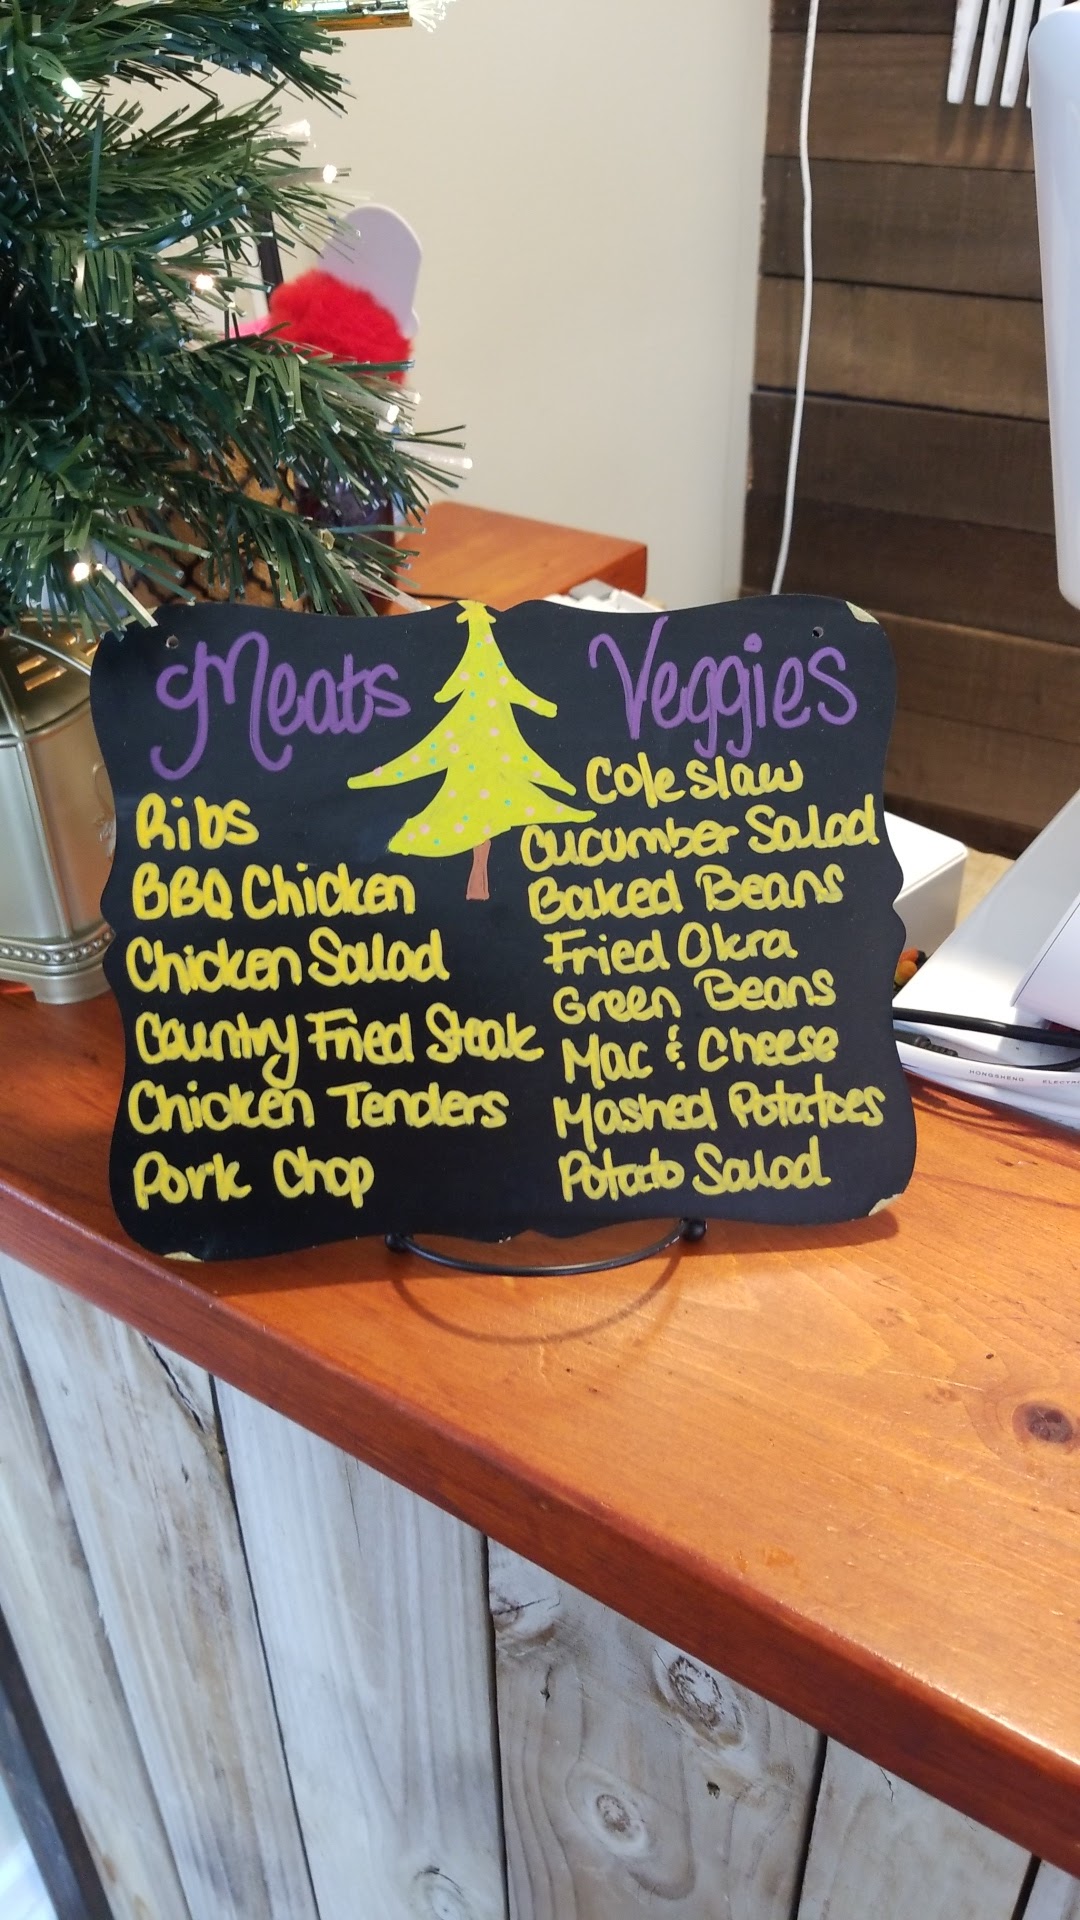 Meats
Ribs
BBQ Chicken
Chicken Salad
Country Fried Steak
Chicken Tenders
Pork Chop
Veggies
Cole slaw
Cucumber Salad
Baked Beans
Fried Okra
Green Beans
Mac & Cheese
Mashed Potatoes
Potato Salad
HONGSHENG ELECTR